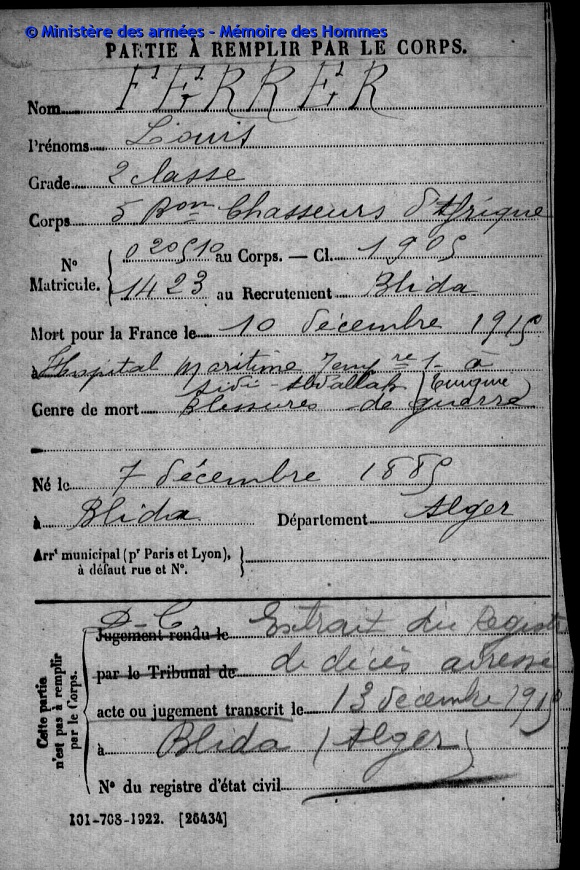 © Ministère des armées - Mémoire des Hommes
PARTIE À REMPLIR PAR LE CORPS.
Nom FERRER
Prénoms Louis
Grade 2 classe
Corps 5 Bon Chasseurs d'Afrique
N° Matricule. { 020510 au Corps. — Cl. 1905
1423 au Recrutement Blida
Mort pour la France le 10 décembre 1915
à Hopital maritime Tempre 1 à
Sidi-Abdallah (Tunisie)
Genre de mort Blessures de guerre
Né le 7 décembre 1885
à Blida Département Alger
Arrt municipal (pr Paris et Lyon), à défaut rue et N°. }
Cette partie n'est pas à remplir par le Corps.
D-C
Jugement rendu le Extrait du Registre
par le Tribunal de de décès adressé
acte ou jugement transcrit le 13 decembre 1915
à Blida (Alger)
N° du registre d'état civil
101-708-1922. [26434]